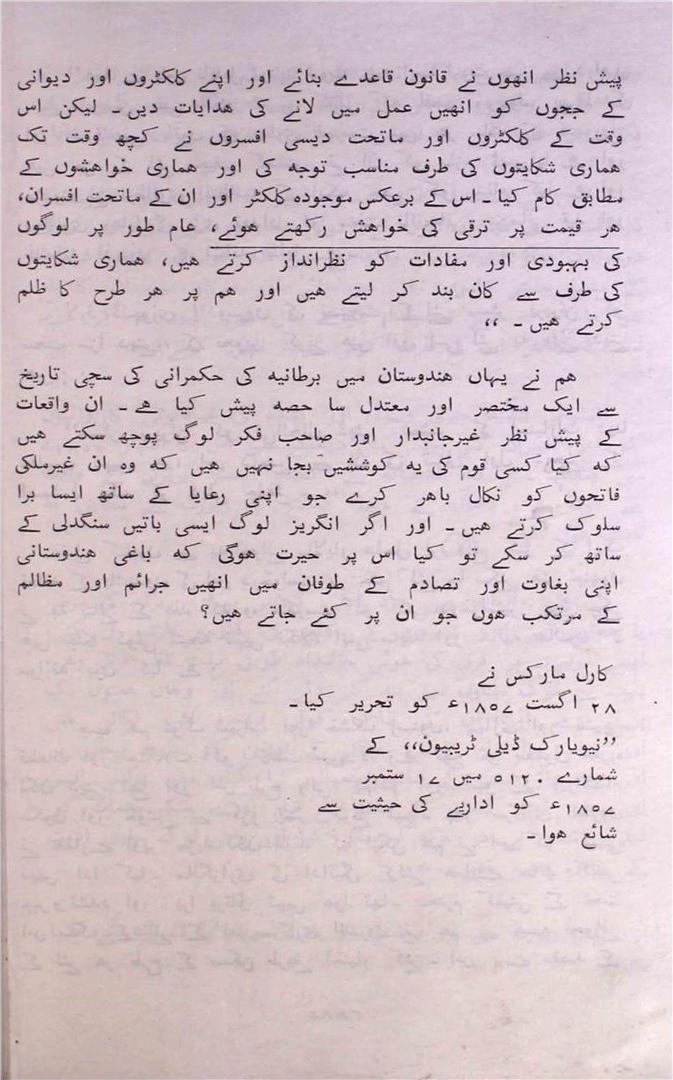 پیش نظر انھوں نے قانون قاعدے بنائے اور اپنے کلکٹروں اور دیوانی
کے ججوں کو انھیں عمل میں لانے کی ھدایات دیں۔ لیکن اس
وقت کے کلکٹروں اور ماتحت دیسی افسروں نے کچھ وقت تک
ھماری شکایتوں کی طرف مناسب توجہ کی اور ھماری خواھشوں کے
مطابق کام کیا۔ اس کے برعکس موجودہ کلکٹر اور ان کے ماتحت افسران،
ھر قیمت پر ترقی کی خواھش رکھتے ھوئے، عام طور پر لوگوں
کی بہبودی اور مفادات کو نظرانداز کرتے ھیں، ھماری شکایتوں
کی طرف سے کان بند کر لیتے ھیں اور ھم پر ھر طرح کا ظلم
کرتے ھیں۔ ،،
ھم نے یہاں ھندوستان میں برطانیہ کی حکمرانی کی سچی تاریخ
سے ایک مختصر اور معتدل سا حصہ پیش کیا ھے۔ ان واقعات
کے پیش نظر غیرجانبدار اور صاحب فکر لوگ پوچھ سکتے ھیں
کہ کیا کسی قوم کی یہ کوششیں بجا نہیں ھیں کہ وہ ان غیرملکی
فاتحوں کو نکال باھر کرے جو اپنی رعایا کے ساتھ ایسا برا
سلوک کرتے ھیں۔ اور اگر انگریز لوگ ایسی باتیں سنگدلی کے
ساتھ کر سکے تو کیا اس پر حیرت ھوگی کہ باغی ھندوستانی
اپنی بغاوت اور تصادم کے طوفان میں انھیں جرائم اور مظالم
کے مرتکب ھوں جو ان پر کئے جاتے ھیں؟
کارل مارکس نے
۲۸ اگست ۱۸۵۷ء کو تحریر کیا۔
’’نیویارک ڈیلی ٹریبیون،، کے
شمارے ۵۱۲۰ میں ۱۷ ستمبر
۱۸۵۷ء کو اداریے کی حیثیت سے
شائع ھوا۔